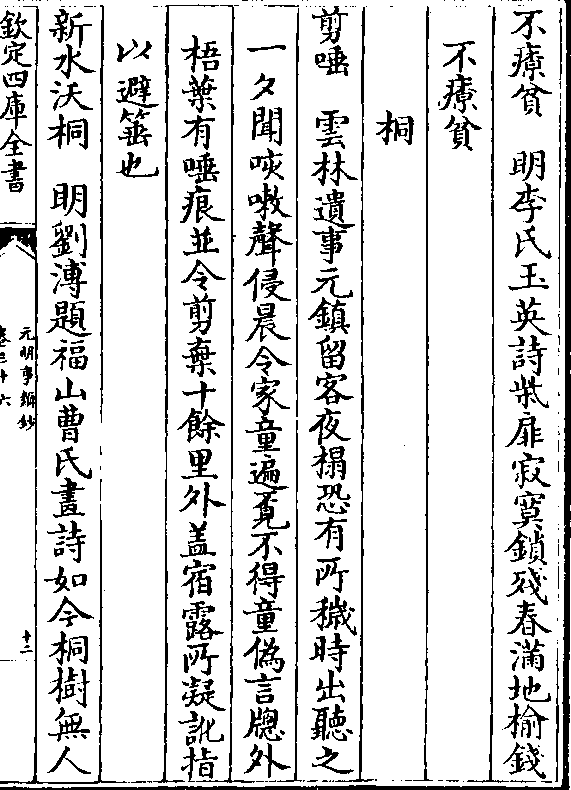 不療貧　明李氏玉英詩柴扉寂寞鎖殘春滿地榆錢
不療貧
桐
剪唾　雲林遺事元鎮留客夜榻恐有所穢時出聽之
一夕聞咳嗽聲侵晨令家童遍覓不得童偽言牕外
梧葉有唾痕並令剪棄十餘里外盖宿露所凝訛指
以避箠也
新水沃桐　明劉溥題福山曹氏畫詩如今桐樹無人
欽定四庫全書
元明事類鈔
卷三十六
十二